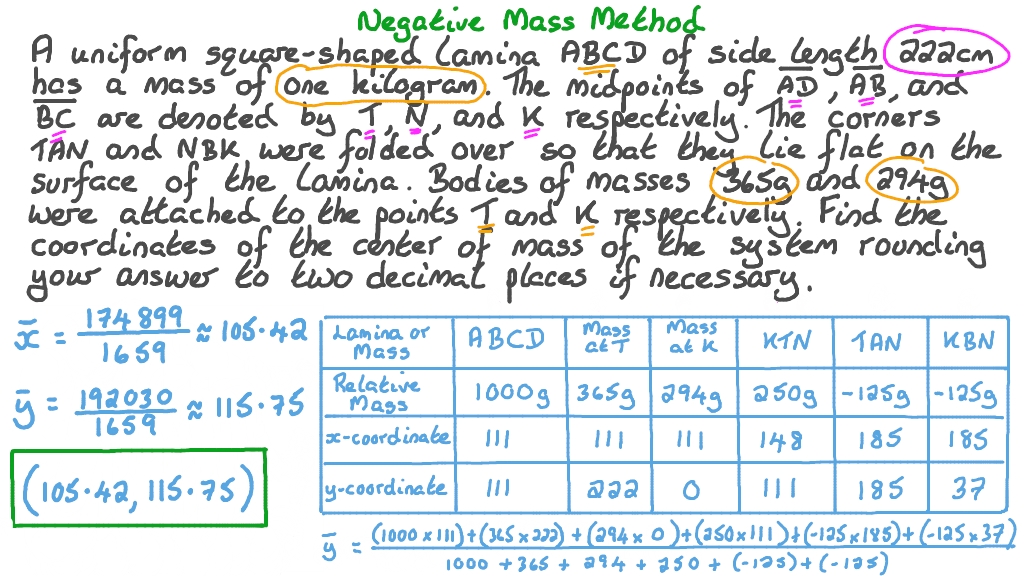 Negative Mass Method
A uniform square-shaped lamina ABCD of side length 222cm
has a mass of one kilogram. The midpoints of AD, AB, and
BC are denoted by T, N, and K respectively. The corners
TAN and NBK were folded over so that they lie flat on the
surface of the lamina. Bodies of masses 365g and 294g
were attached to the points T and K respectively. Find the
coordinates of the center of mass of the system rounding
your answer to two decimal places if necessary.
x̄ = 174899/1659 ≈ 105.42
ȳ = 192030/1659 ≈ 115.75
(105.42, 115.75)
Lamina or Mass | ABCD | Mass at T | Mass at K | KTN | TAN | KBN
Relative Mass | 1000g | 365g | 294g | 250g | -125g | -125g
x-coordinate | 111 | 111 | 111 | 148 | 185 | 185
y-coordinate | 111 | 222 | 0 | 111 | 185 | 37
ȳ = (1000 × 111) + (365 × 222) + (294 × 0) + (250 × 111) + (-125 × 185) + (-125 × 37)
1000 + 365 + 294 + 250 + (-125) + (-125)